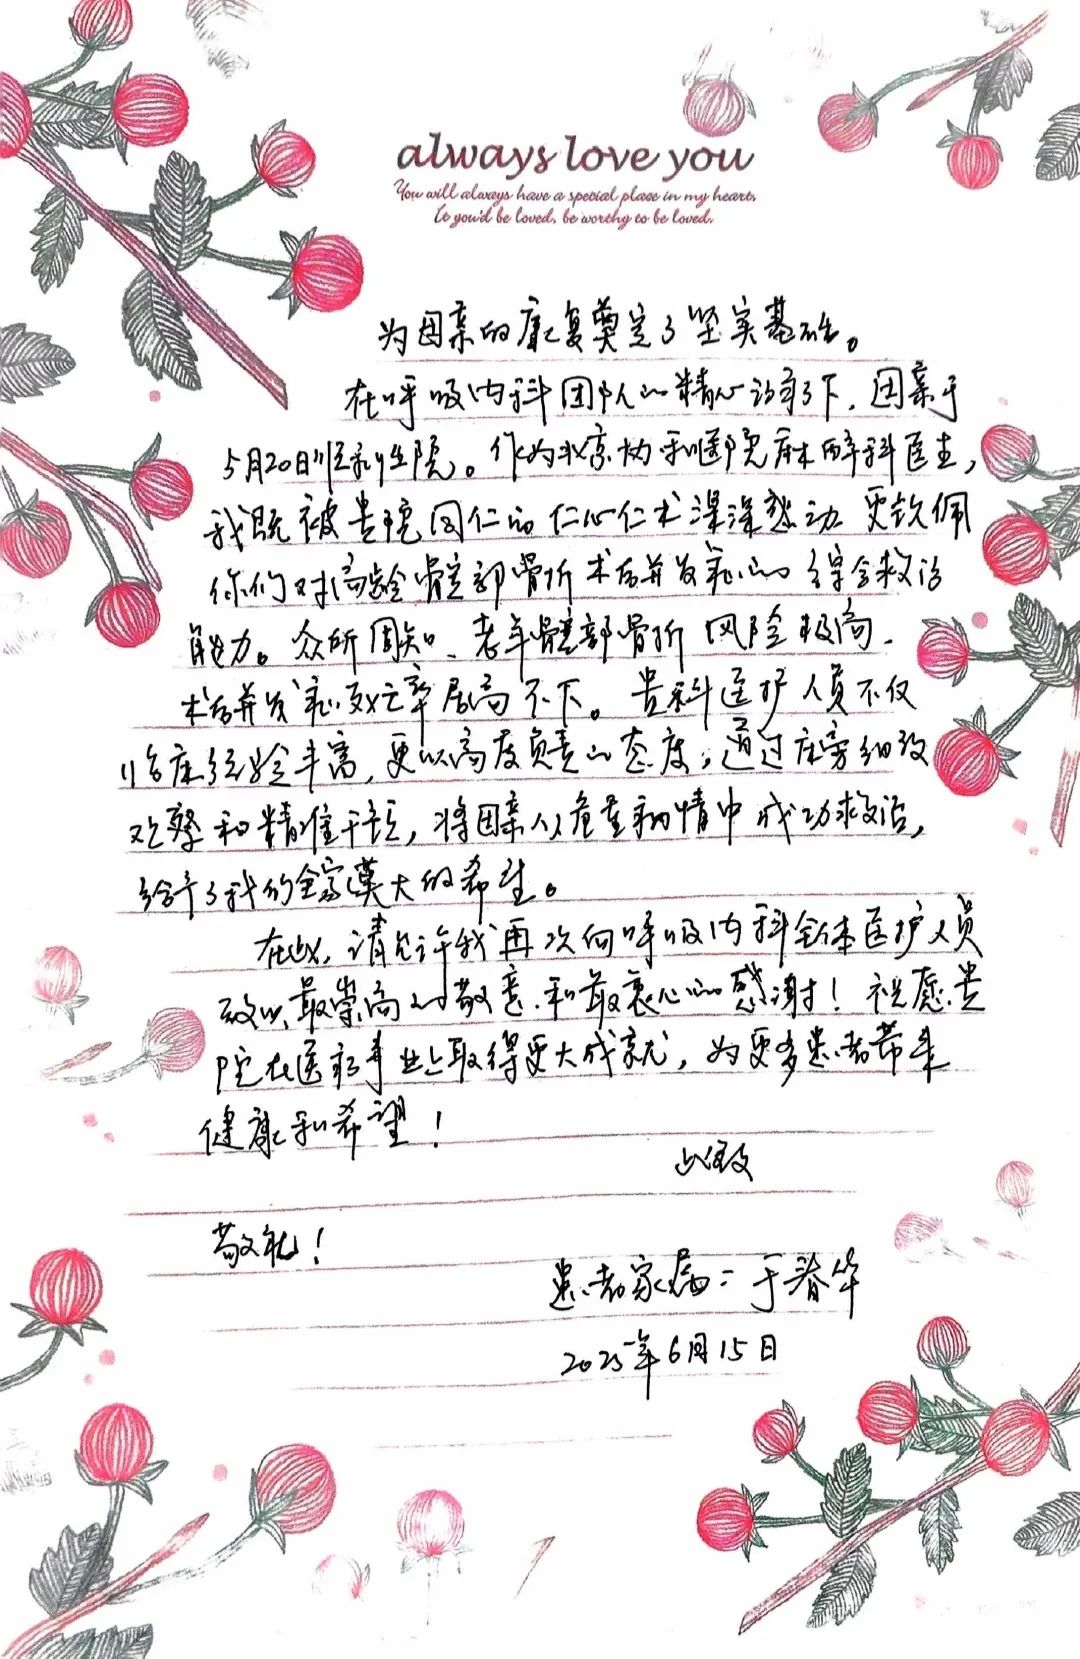 always love you
You will always have a special place in my heart.
If you'd be loved, be worthy to be loved.
为母亲的康复奠定了坚实基础。
在呼吸内科团队的精心治疗下，母亲于
5月20日顺利出院。作为北京协和医院麻醉科医生，
我既被贵院同仁的仁心仁术深深感动 更钦佩
你们对高龄髋部骨折术后并发症的综合救治
能力。众所周知、老年髋部骨折风险极高、
术后并发症死亡率居高不下。贵科医护人员不仅
临床经验丰富，更以高度负责的态度，通过床旁细致
观察和精准干预，将母亲从危重病情中成功救治，
给予了我们全家莫大的希望。
在此，请允许我再次向呼吸内科全体医护人员
致以最崇高的敬意、和最衷心的感谢！祝愿贵
院在医疗事业上取得更大成就，为更多患者带来
健康和希望！
此致
敬礼！
患者家属：于春华
2025年6月15日